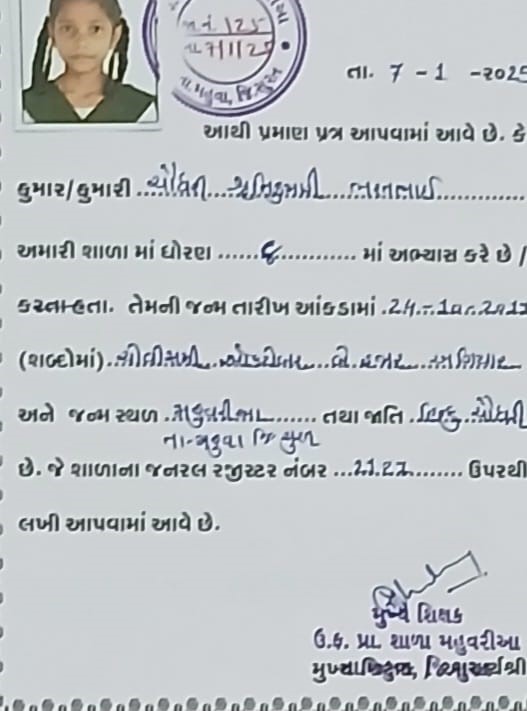 જા.નં. 125
તા. 7/1/25
તા. મહુવા, જિ. સુરત
તા. 7 - 1 - ૨૦25
આથી પ્રમાણ પત્ર આપવામાં આવે છે. કે
કુમાર/કુમારી ...ચૌધરી...
અમારી શાળા માં ધોરણ ......૬............ માં અભ્યાસ કરે છે /
કરતા હતા. તેમની જન્મ તારીખ આંકડામાં .24.-.10.-.201
(શબ્દોમાં) ઓક્ટોબર બે હજાર
અને જન્મ સ્થળ મહુવરીઆ ....... તથા જાતિ .હિન્દુ ચૌધરી
તા-મહુવા જિ સુરત
છે. જે શાળાના જનરલ રજીસ્ટર નંબર ...2127........ ઉપરથી
લખી આપવામાં આવે છે.
મુખ્ય શિક્ષક
ઉ.ક. પ્રા. શાળા મહુવરીઆ